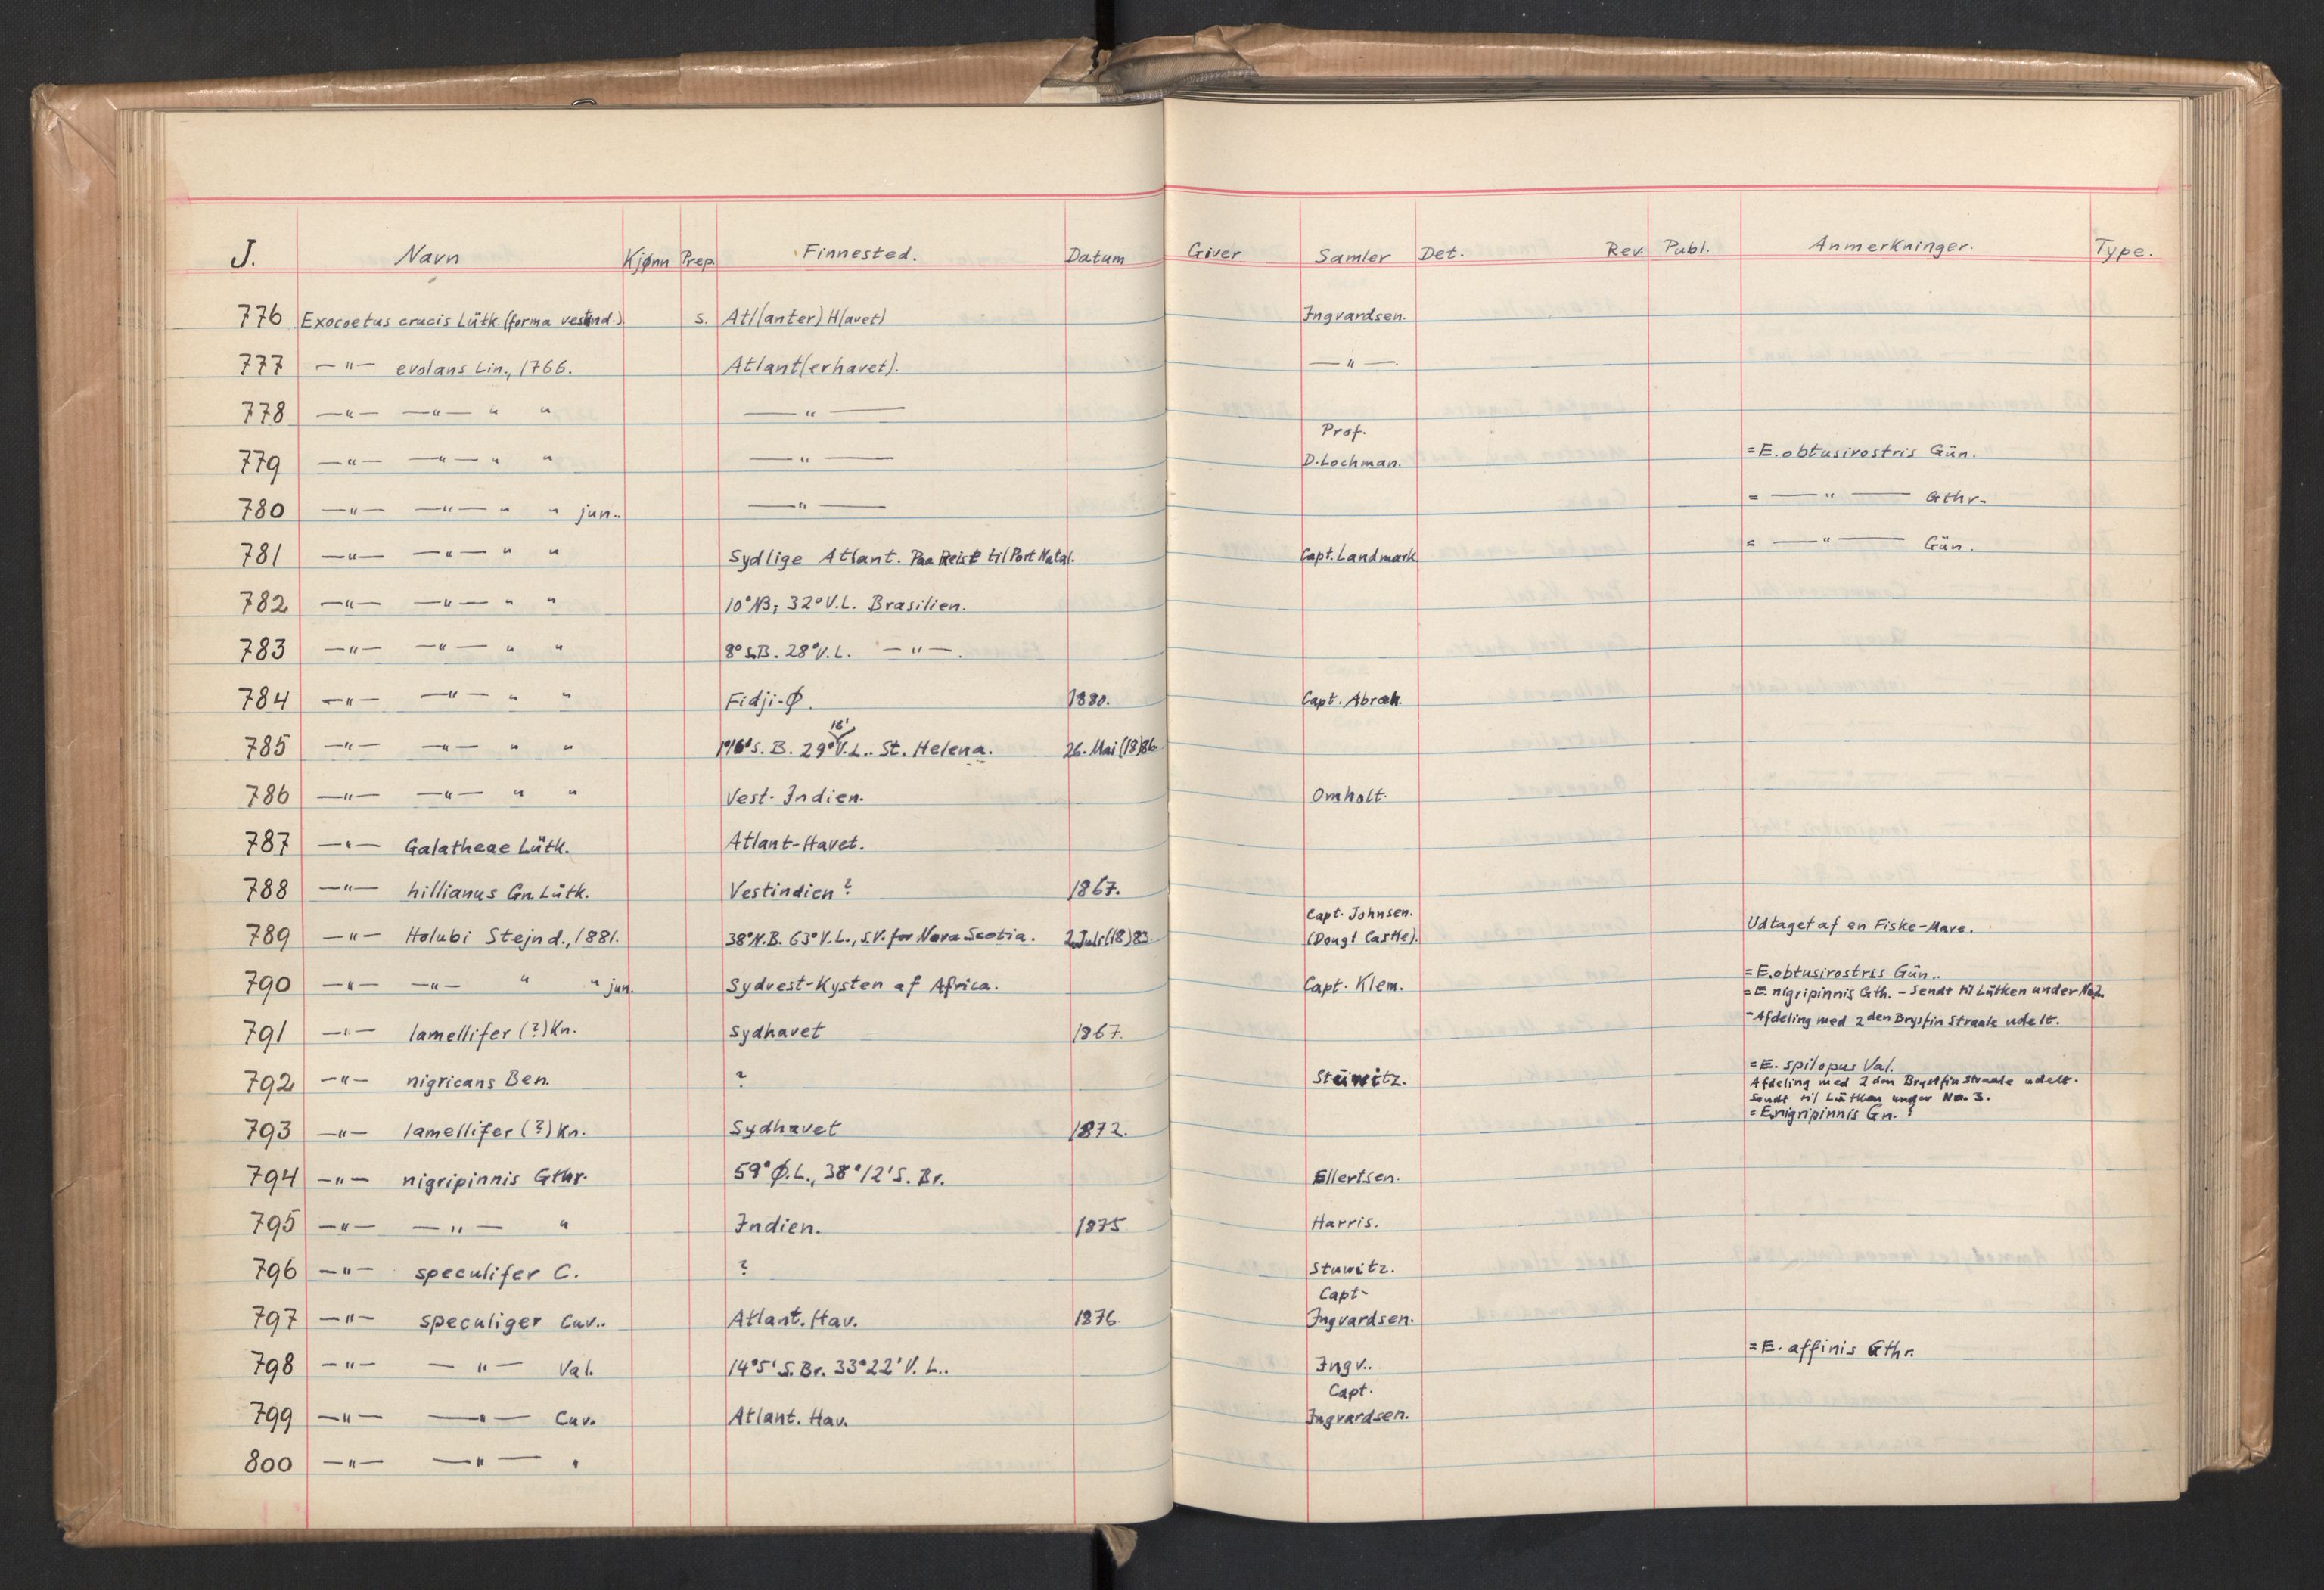 J. Navn Kjønn Prep Finnested. Datum Giver Samler Det. Rev. Publ. Anmerkninger. Type.
776 Exocoetus crucis Lütk. (forma vestind.) s. Atl(anter) H(avet) Ingvardsen.
777 —"— evolans Lin., 1766. Atlant(erhavet). —"—
778 —"— —"— " " —"—
Prof.
779 —"— —"— " " —"— D. Lochman. =E. obtusirostris Gün.
780 —"— —"— " " jun.. —"— = —"— Gthr.
781 —"— —"— " " Sydlige Atlant. Paa Reise til Port Natal. Capt. Landmark = —"— Gün.
782 —"— —"— " " 10° NB; 32° V.L. Brasilien.
783 —"— —"— " " 8° S.B. 28° V.L. —"—.
784 —"— —"— " " Fidji-Ø. 1880. Capt.
16'
785 —"— —"— " " S. B. 29° V.L.. St. Helena. 26. Mai (18)86
786 —"— —"— " " Vest-Indien. Omholt.
787 —"— Galatheae Lütk. Atlant-Havet.
788 —"— hillianus Gn. Lütk. Vestindien? 1867.
Capt. Johnsen.
789 —"— Holubi Stejnd., 1881. 38° N.B. 63° V.L., S.V. for Nova Scotia. 2. Juli (18)83 (Dougl Castle). Udtaget af en Fiske-Mave.
790 —"— —"— " " jun. Sydvest-Kysten af Africa. Capt. Klem. =E. obtusirostris Gün..
=E. nigripinnis Gth. - Sendt til Lütken under No 2
791 —"— lamellifer (?) Kn. Sydhavet 1867. -Afdeling med 2den Brystfin Straale udelt.
792 —"— nigricans Ben. ? Stüwitz. =E. spilopus Val.
Afdeling med 2den Brystfin straale udelt.
Sendt til Lütken under No. 3.
793 —"— lamellifer (?) Kn. Sydhavet 1872. =E. nigripinnis Gn. ?
794 —"— nigripinnis Gthr. 59° Ø.L., 38° 12' S. Br. Ellertsen.
795 —"— —"— " Indien. 1875 Harris.
796 —"— speculifer C. ? Stuwitz.
Capt-
797 —"— speculiger Cuv.. Atlant. Hav. 1876 Ingvardsen.
798 —"— —"— Val. 14° 5' S. Br. 33° 22' V. L.. Ingv.. =E. affinis Gthr.
Capt.
799 —"— —"— Cuv. Atlant. Hav. Ingvardsen.
800 —"— —"— "